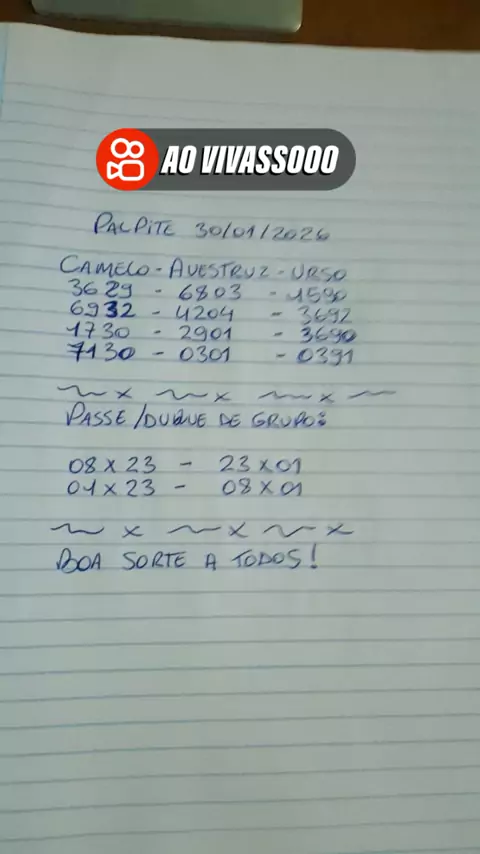 AO VIVASSOOO
PALPITE 30/01/2026
CAMELO - AVESTRUZ - URSO
3629 - 6803 - 1590
6932 - 4204 - 3692
1730 - 2901 - 3690
7130 - 0301 - 0391
~ x ~ x ~ x ~
PASSE/DUQUE DE GRUPO:
08 X 23 - 23 X 01
01 X 23 - 08 X 01
~ x ~ x ~ x
BOA SORTE A TODOS!